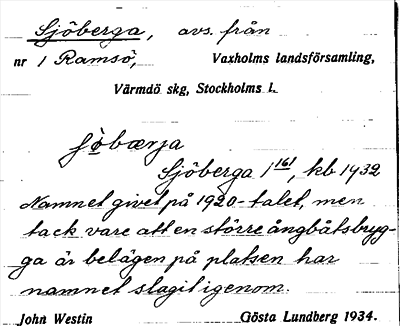 Sjöberga, avs. från
nr 1 Ramsö, Vaxholms landsförsamling,
Värmdö skg, Stockholms l.
Sjöberga 1¹⁶¹, kb 1932
Namnet givet på 1920-talet, men
tack vare att en större ångbåtsbryg-
ga är belägen på platsen har
namnet slagit igenom.
John Westin Gösta Lundberg 1934.